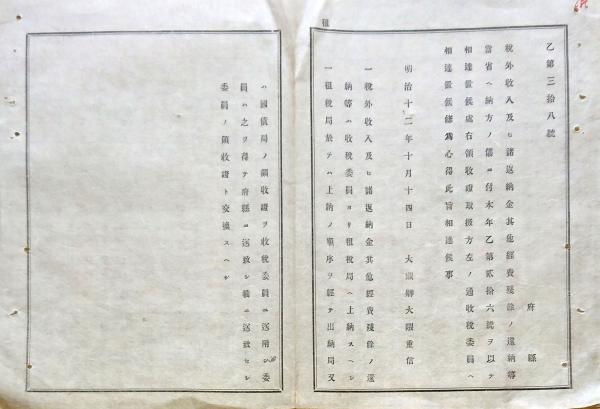 租
乙第三拾八號
府縣
税外收入及ヒ諸返納金其他經費殘餘ノ還納等
當省ヘ納方ノ儀ニ付本年乙第貳拾六號ヲ以テ
相達置候處右領收證取扱方左ノ通收税委員ヘ
相達置候條爲心得此旨相達候事
明治十二年十月十四日 大藏卿大隈重信
一税外收入及ヒ諸返納金其他經費殘餘ノ還
納等ハ收税委員ヨリ租税局ヘ上納スヘシ
一租税局於テハ上納ノ順序ヲ經テ出納局又
ハ國債局ノ領收證ヲ收税委員ニ送附シ委
員ハ之ヲ得テ府縣ニ送致シ曩ニ送致セシ
委員ノ領收證ト交換スヘシ